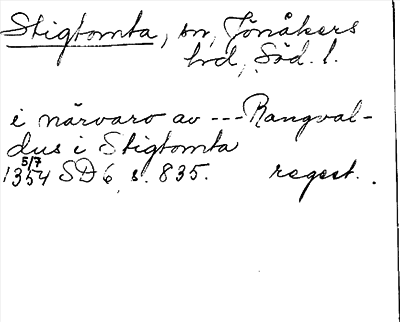 Stigtomta, sn, Jönåkers
hd, Söd. l.
i närvaro av --- Rangval-
dus i Stigtomta
5/7
1354 SD 6, s. 835. regest.